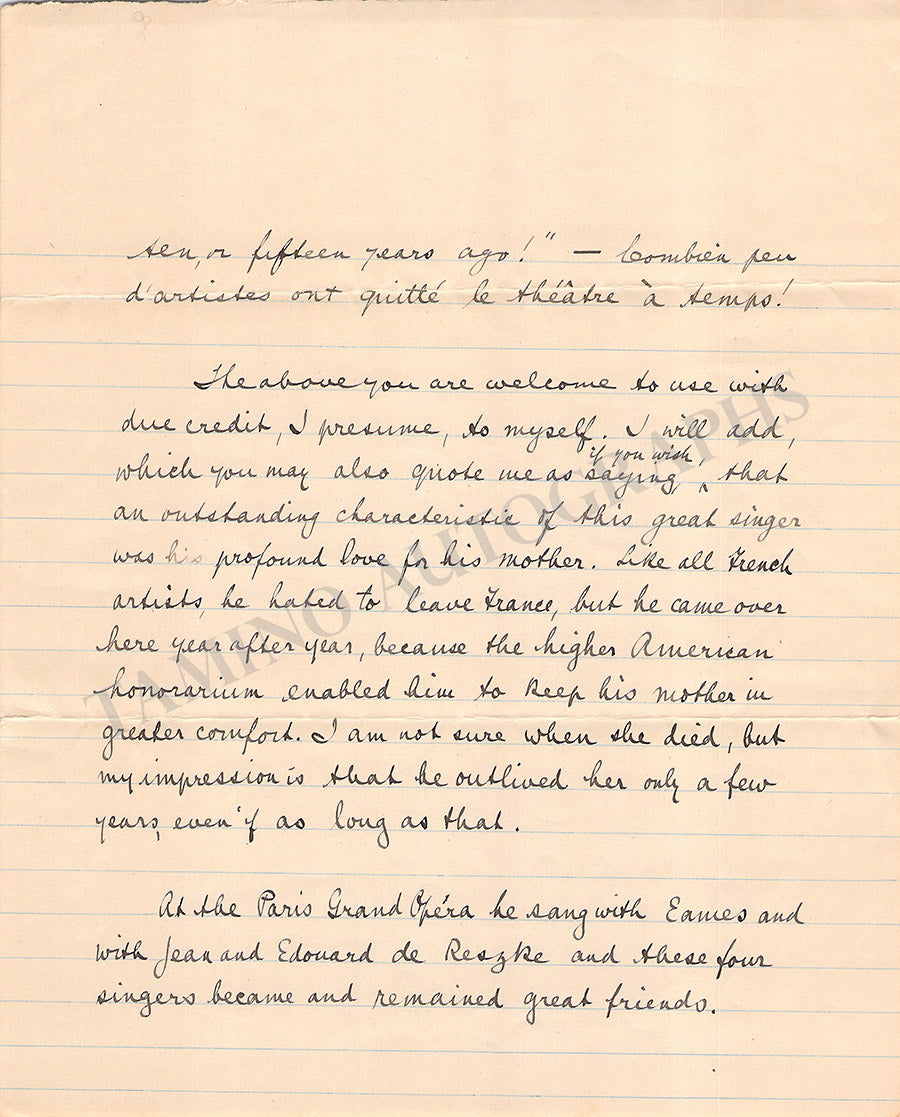 ten, or fifteen years ago!" — Combien peu
d'artistes ont quitté le théâtre à temps!
The above you are welcome to use with
due credit, I presume, to myself. I will add,
if you wish,
which you may also quote me as saying, that
an outstanding characteristic of this great singer
was his profound love for his mother. Like all French
artists, he hated to leave France, but he came over
here year after year, because the higher American
honorarium enabled him to keep his mother in
greater comfort. I am not sure when she died, but
my impression is that he outlived her only a few
years, even if as long as that.
At the Paris Grand Opéra he sang with Eames and
with Jean and Edouard de Reszke and these four
singers became and remained great friends.
TAMINO AUTOGRAPHS